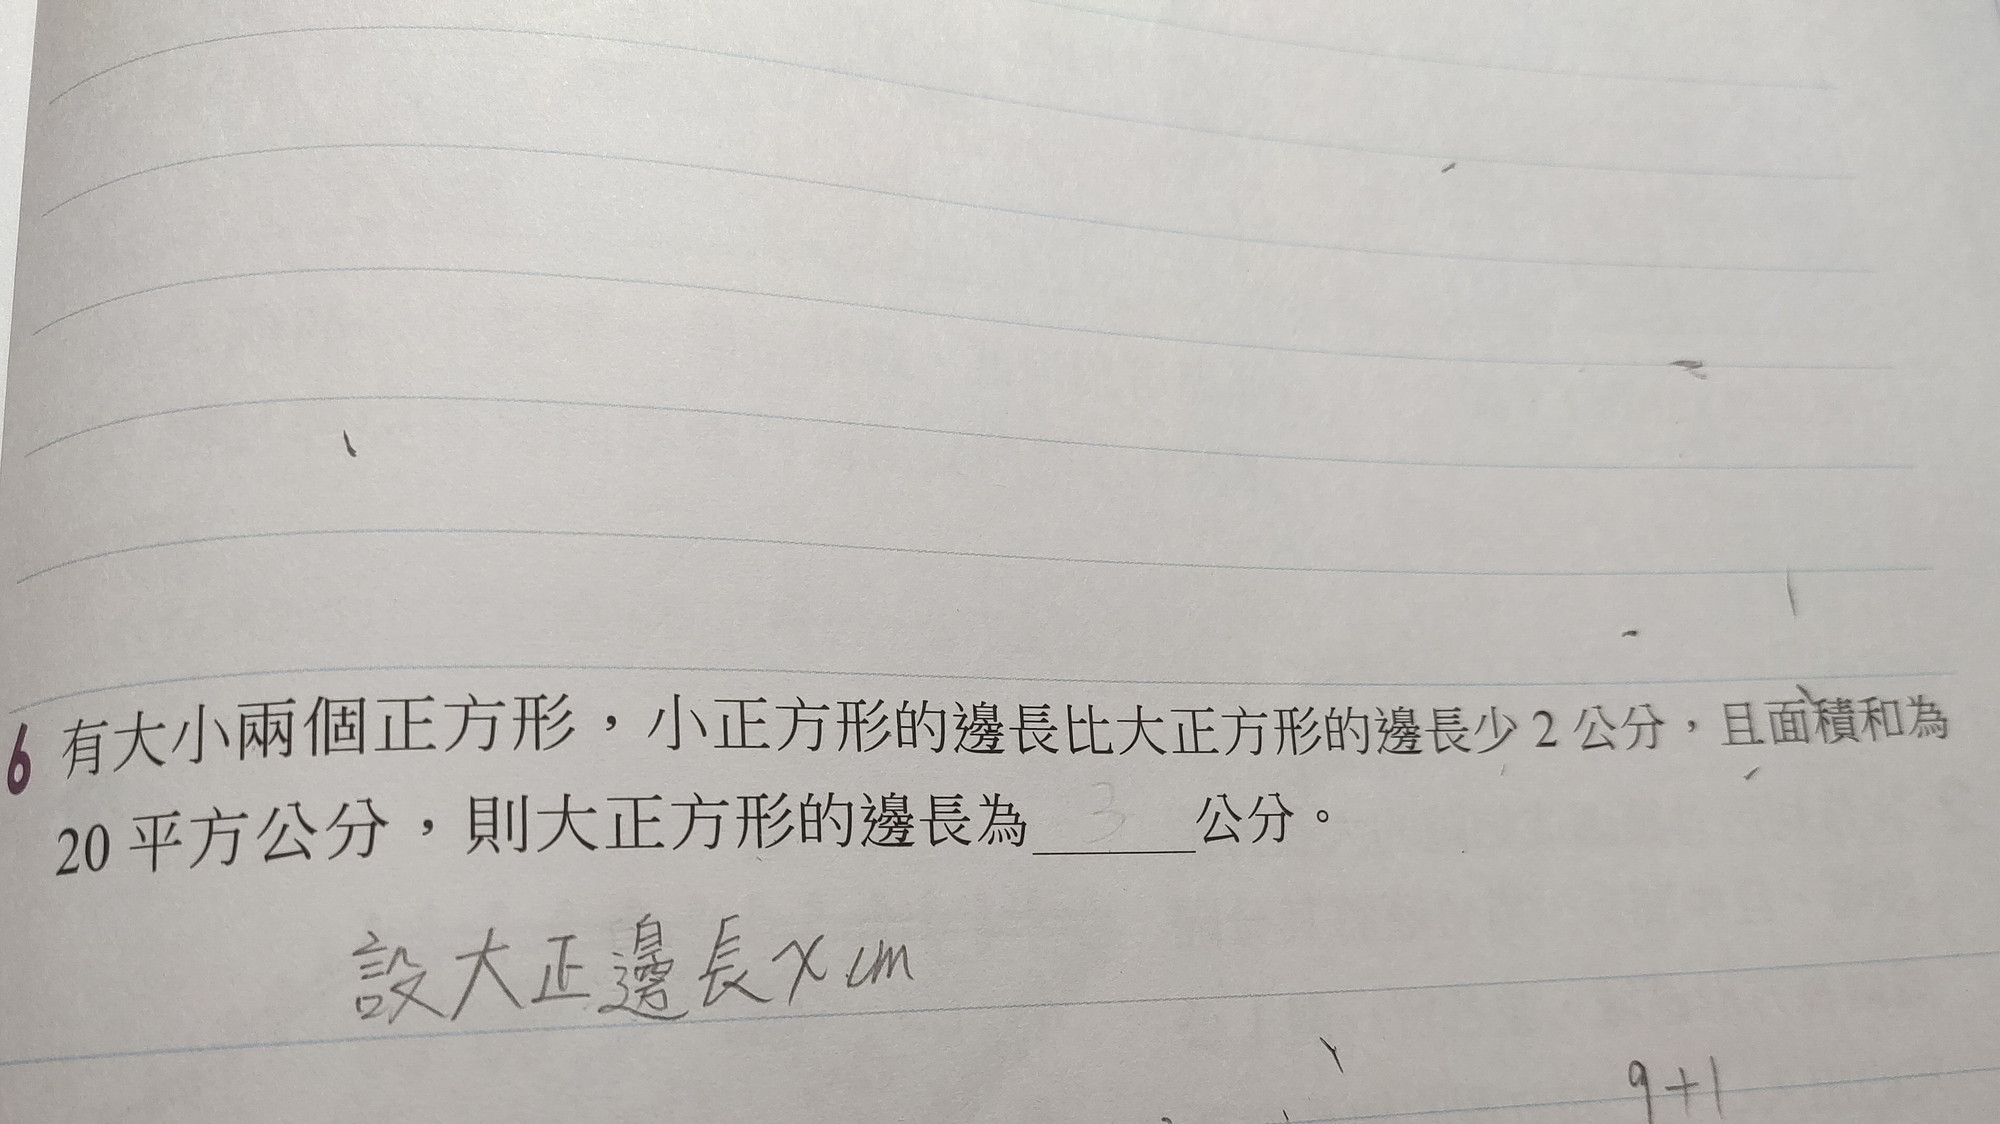 6 有大小兩個正方形，小正方形的邊長比大正方形的邊長少 2 公分，且面積和為
20 平方公分，則大正方形的邊長為 3 公分。
設大正邊長 x cm
9+1